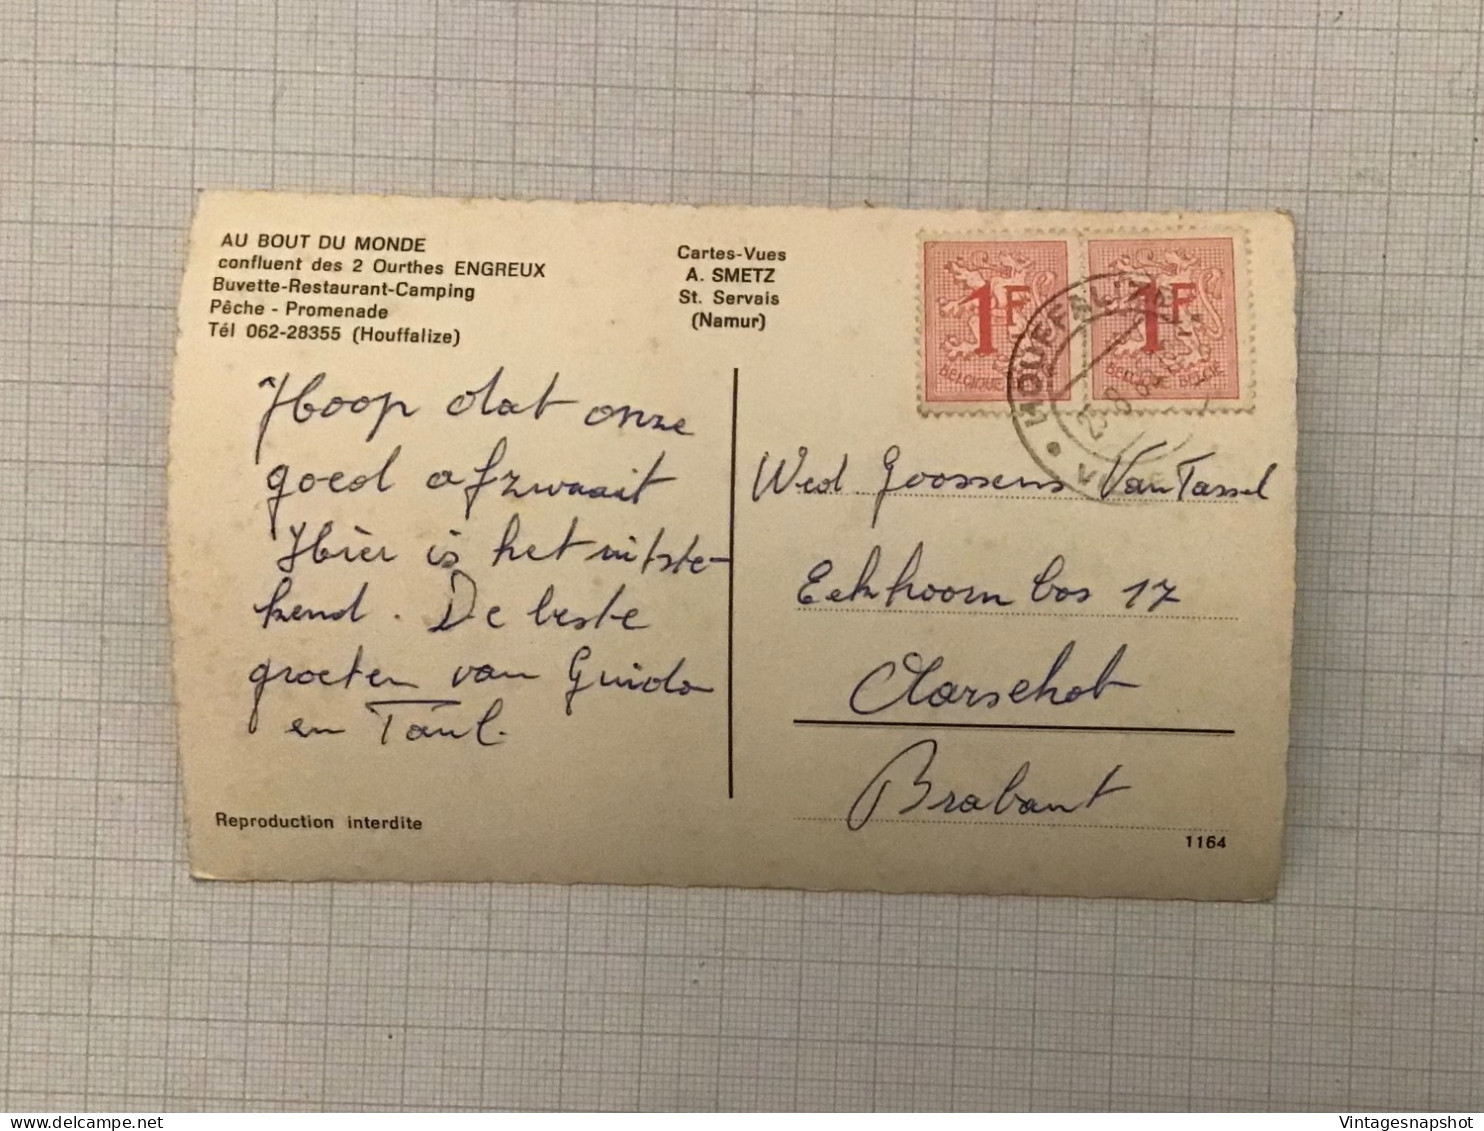 AU BOUT DU MONDE
confluent des 2 Ourthes ENGREUX
Buvette-Restaurant-Camping
Pêche - Promenade
Tél 062-28355 (Houffalize)
Cartes-Vues
A. SMETZ
St. Servais
(Namur)
1F
BELGIQUE
1F
BELGIQUE BELGIE
HOUFFALIZE
Hoop dat onze
goed afzwaait
Hier is het uitste-
kend. De beste
groeten van Guido
en Paul.
Wed Goossens Van Tassel
Eekhoorn bos 17
Aarschot
Brabant
Reproduction interdite
1164
Vintagesnapshot